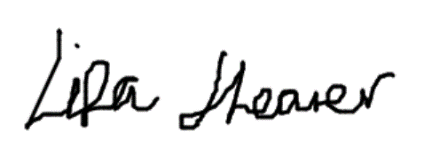 Lisa Shearer